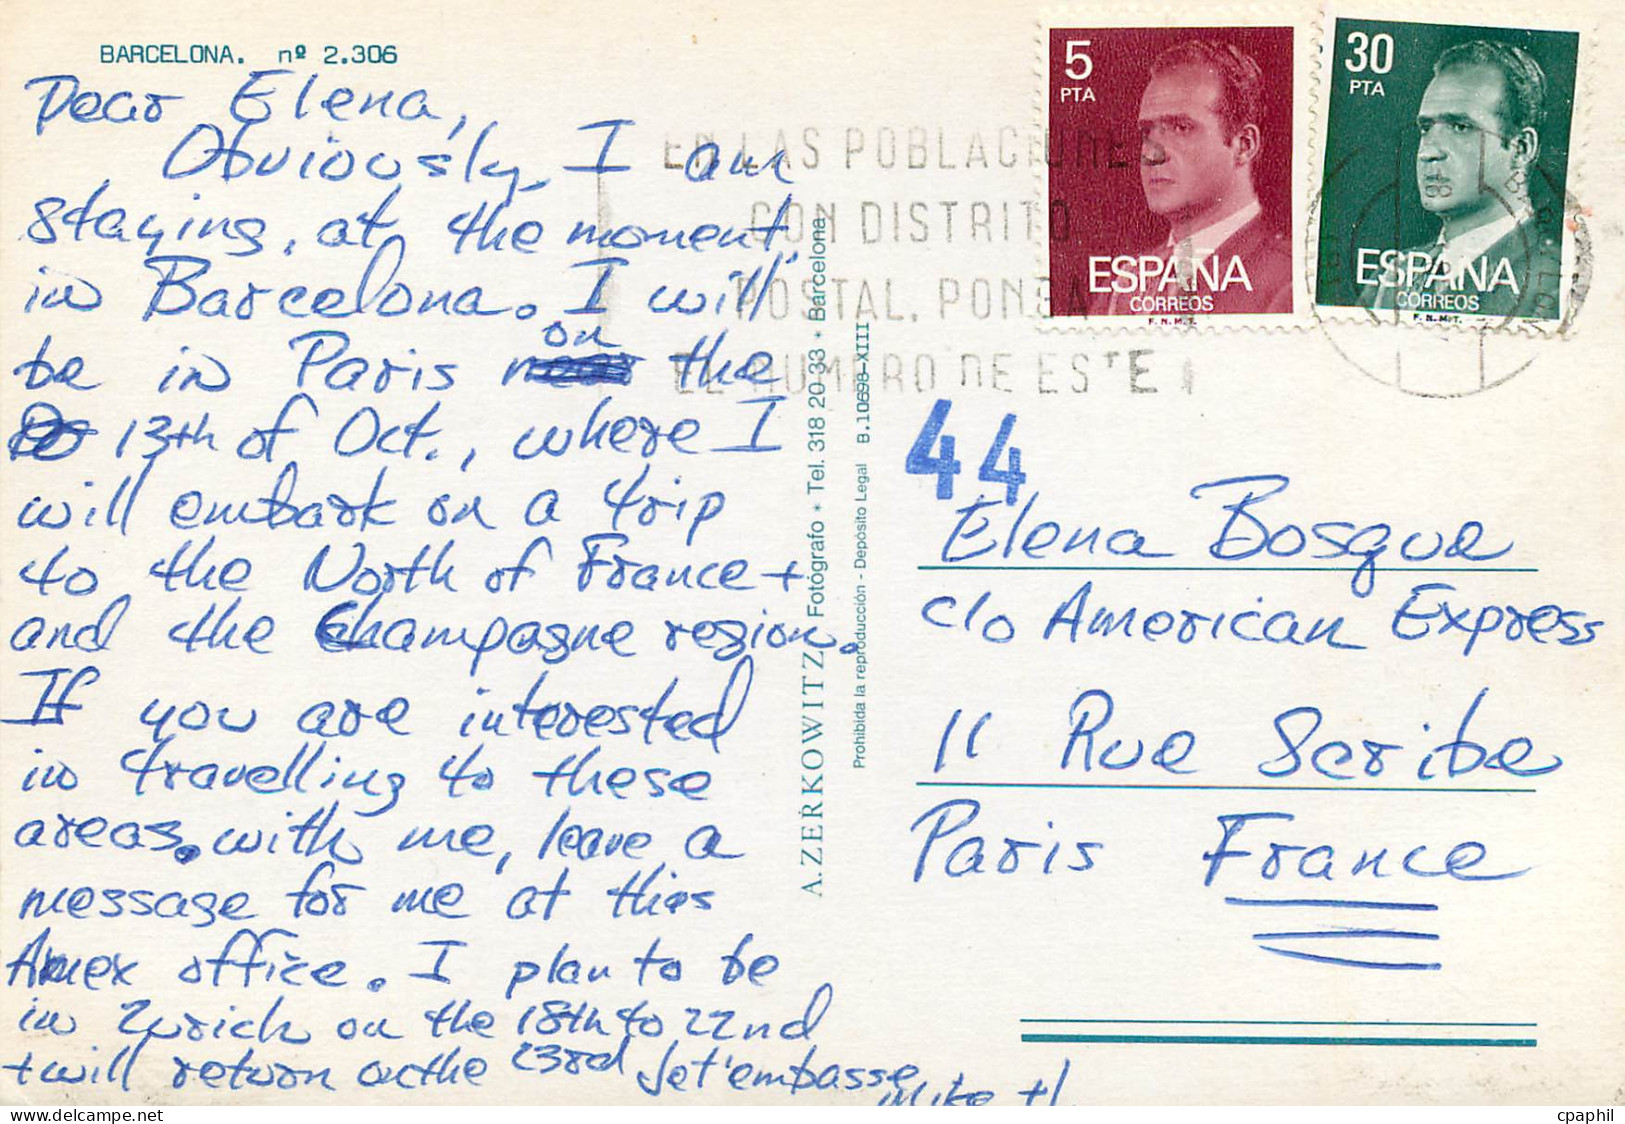 BARCELONA. nº 2.306
Dear Elena,
Obviously, I am
staying, at the moment
in Barcelona. I will
be in Paris on the
13th of Oct., where I
will embark on a trip
to the North of France +
and the Champagne region.
If you are interested
in travelling to these
areas, with me, leave a
message for me at this
Amex office. I plan to be
in Zurich on the 18th to 22nd
+ will return on the 23rd Jet'embasse
Mike H.
A. ZERKOWITZ Fotógrafo • Tel. 318 20 33 • Barcelona
Prohibida la reproducción - Depósito Legal B.10698-XIII
5
PTA
ESPAÑA
CORREOS
F.N.M.T.
30
PTA
ESPAÑA
CORREOS
F.N.M.T.
EN LAS POBLACIONES
CON DISTRITO
POSTAL, PONGA
EL NUMERO DE ESTE
44
Elena Bosque
c/o American Express
11 Rue Scribe
Paris France
cpaphil